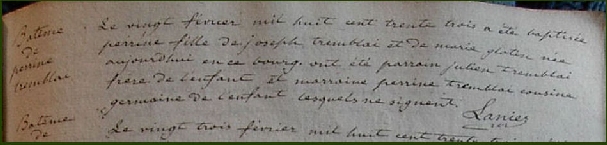 Bateme
de
perrine
tremblai
Le vingt février mil huit cent trente trois a été baptisée
perrine fille de joseph tremblai et de marie gloten née
aujourdhui en ce bourg. ont été parrain julien tremblai
frere de l'enfant et marraine perrine tremblai cousine
germaine de l'enfant lesquels ne signent. Lanier
Bateme
de
Le vingt trois février mil huit cent trente trois